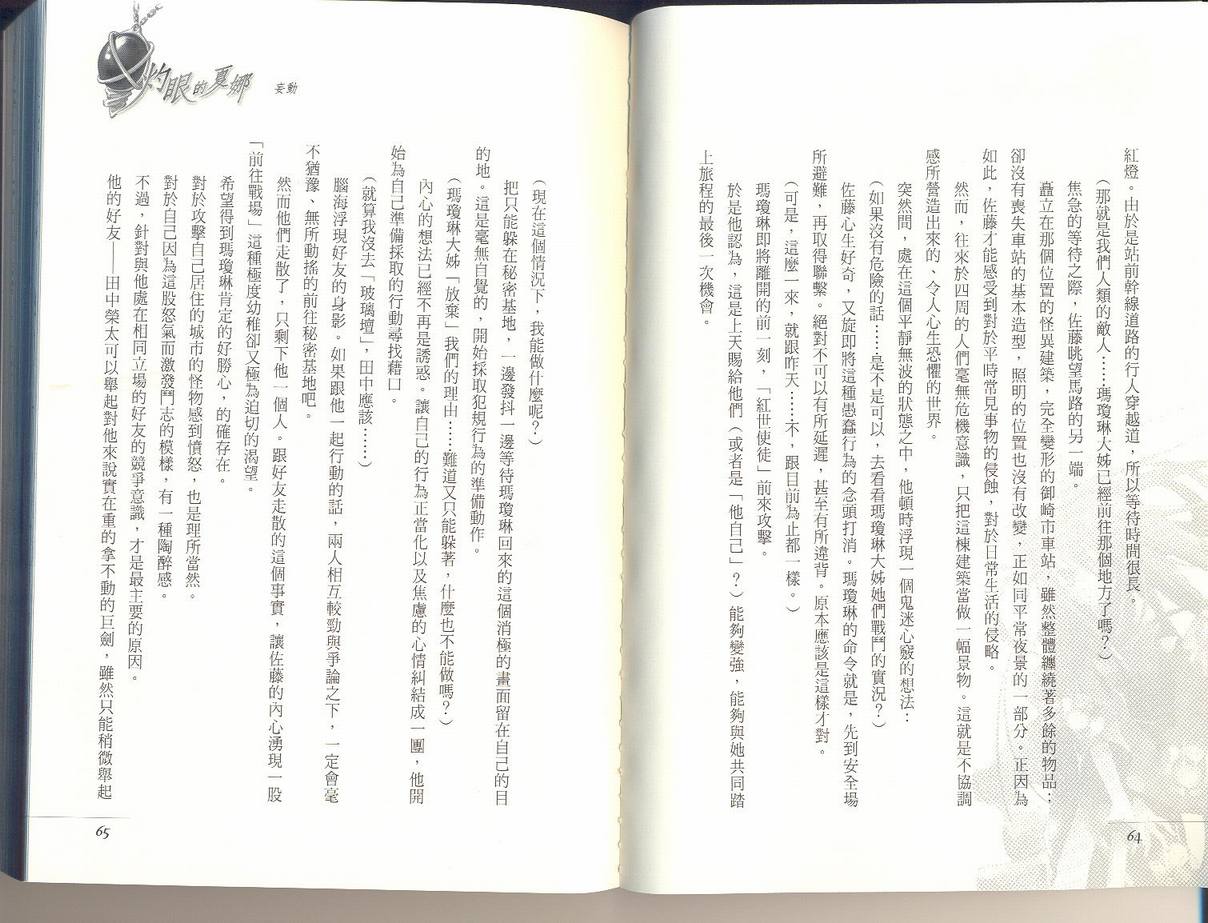 紅燈。由於是站前幹線道路的行人穿越道，所以等待時間很長。
（那就是我們人類的敵人……瑪瓊琳大姊已經前往那個地方了嗎？）
焦急的等待之際，佐藤眺望馬路的另一端。
矗立在那個位置的怪異建築，完全變形的御崎市車站，雖然整體纏繞著多餘的物品；
卻沒有喪失車站的基本造型，照明的位置也沒有改變，正如同平常夜景的一部分。正因為
如此，佐藤才能感受到對於平時常見事物的侵蝕，對於日常生活的侵略。
然而，往來於四周的人們毫無危機意識，只把這棟建築當做一幅景物。這就是不協調
感所營造出來的、令人心生恐懼的世界。
突然間，處在這個平靜無波的狀態之中，他頓時浮現一個鬼迷心竅的想法：
（如果沒有危險的話……是不是可以，去看看瑪瓊琳大姊她們戰鬥的實況？）
佐藤心生好奇，又旋即將這種愚蠢行為的念頭打消。瑪瓊琳的命令就是，先到安全場
所避難，再取得聯繫。絕對不可以有所延遲，甚至有所違背。原本應該是這樣才對。
（可是，這麼一來，就跟昨天……不，跟目前為止都一樣。）
瑪瓊琳即將離開的前一刻，「紅世使徒」前來攻擊。
於是他認為，這是上天賜給他們（或者是「他自己」？）能夠變強，能夠與她共同踏
上旅程的最後一次機會。
64
灼眼的夏娜 妄動
（現在這個情況下，我能做什麼呢？）
把只能躲在秘密基地，一邊發抖一邊等待瑪瓊琳回來的這個消極的畫面留在自己的目
的地。這是毫無自覺的，開始採取犯規行為的準備動作。
（瑪瓊琳大姊「放棄」我們的理由……難道又只能躲著，什麼也不能做嗎？）
內心的想法已經不再是誘惑。讓自己的行為正當化以及焦慮的心情糾結成一團，他開
始為自己準備採取的行動尋找藉口。
（就算我沒去「玻璃壇」，田中應該……）
腦海浮現好友的身影。如果跟他一起行動的話，兩人相互較勁與爭論之下，一定會毫
不猶豫、無所動搖的前往秘密基地吧。
然而他們走散了，只剩下他一個人。跟好友走散的這個事實，讓佐藤的內心湧現一股
「前往戰場」這種極度幼稚卻又極為迫切的渴望。
希望得到瑪瓊琳肯定的好勝心，的確存在。
對於攻擊自己居住的城市的怪物感到憤怒，也是理所當然。
對於自己因為這股怒氣而激發鬥志的模樣，有一種陶醉感。
不過，針對與他處在相同立場的好友的競爭意識，才是最主要的原因。
他的好友——田中榮太可以舉起對他來說實在重的拿不動的巨劍，雖然只能稍微舉起
65